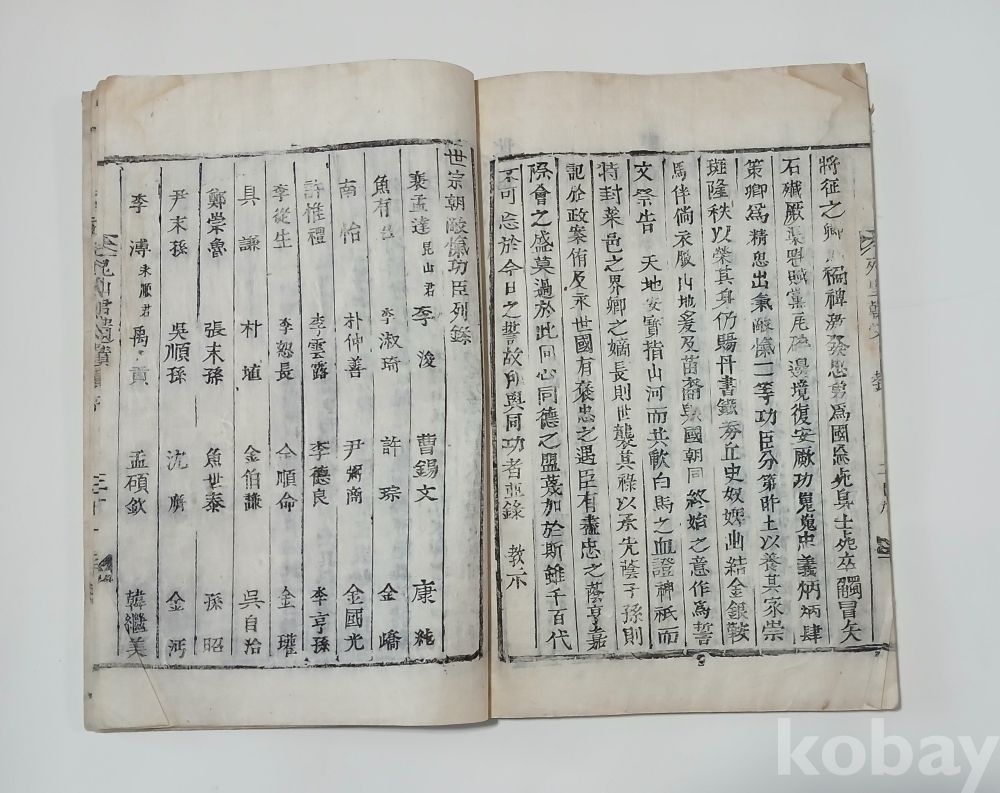 將征之卿 橘禪 發忠勇爲國 死兵士死卒觸冒矢
石殲厥渠魁賊黨瓦碎邊境復安厥功嵬嵬忠義炳炳肆
策卿爲精忠出氣敵愾一等功臣分第胙土以養其家崇
班隆秩以榮其身仍賜丹書鐵券丘史奴婢幽結金銀鞍
馬伴倘衣服山地爰及苗裔與國朝同終始之意作爲誓
文祭告 天地安實指山河而共歃白馬之血證神祇而
特封萊邑之界卿之嫡長則世襲其祿以承先蔭子孫則
記於政案侑及永世國有褒忠之遇臣有盡忠之 亨嘉
際會之盛莫過於此同心同德之盟蔑加於斯雖千百代
不可忘於今日之誓故 與同功者並錄 教示
世宗朝敵愾功臣列錄
裵孟達 昆山君 李浚 曹錫文 康純
魚有 李淑琦 許琮 金嶠
南怡 朴仲善 尹弼商 金國光
許惟禮 李雲露 李德良 李亨孫
李從生 李恕長 金順命 金瓘
具謙 朴埴 金伯謙 吳自治
鄭崇魯 張末孫 魚世泰 孫昭
尹末孫 吳順孫 沈膺 金沔
李溥 永順君 禹貢 孟碩欽 韓繼美
昆山君
kobay